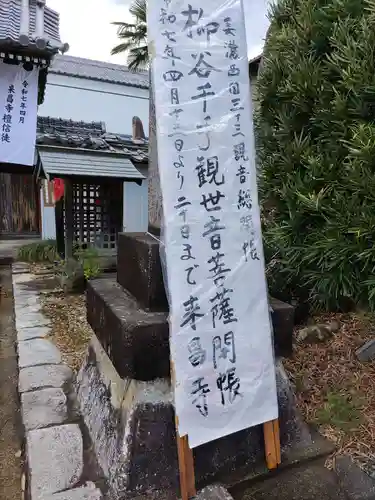 美濃西国三十三観音総開帳
柳谷千手観世音菩薩開帳
令和七年四月十三日より二十日まで 来昌寺
令和七年四月
来昌寺檀信徒